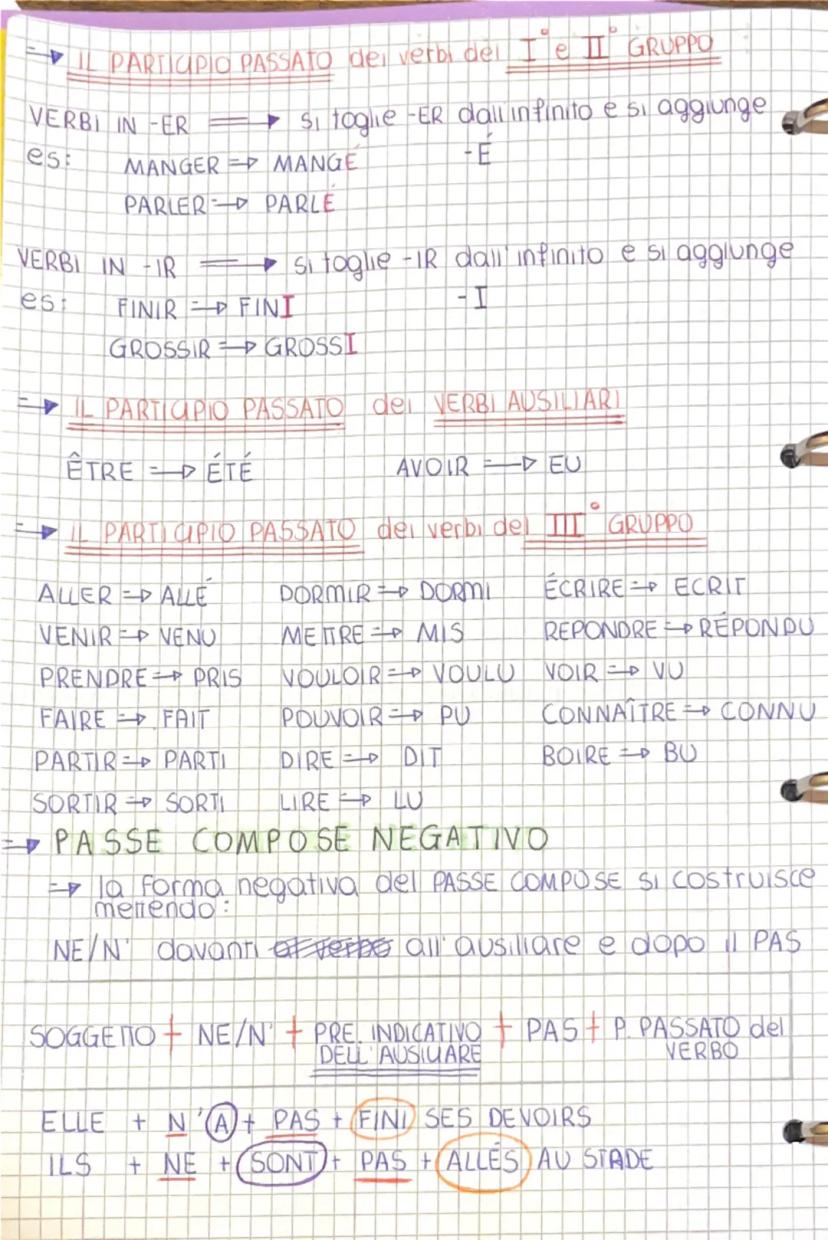 => IL PARTICIPIO PASSATO dei verbi del I° e II° GRUPPO
VERBI IN -ER => si toglie -ER dall'infinito e si aggiunge
es: MANGER => MANGÉ -É
PARLER => PARLÉ
VERBI IN -IR => si toglie -IR dall'infinito e si aggiunge
es: FINIR => FINI -I
GROSSIR => GROSSI
=> IL PARTICIPIO PASSATO dei VERBI AUSILIARI
ÊTRE => ÉTÉ AVOIR => EU
=> IL PARTICIPIO PASSATO dei verbi del III° GRUPPO
ALLER => ALLÉ DORMIR => DORMI ÉCRIRE => ECRIT
VENIR => VENU METTRE => MIS REPONDRE => RÉPONDU
PRENDRE => PRIS VOULOIR => VOULU VOIR => VU
FAIRE => FAIT POUVOIR => PU CONNAÎTRE => CONNU
PARTIR => PARTI DIRE => DIT BOIRE => BU
SORTIR => SORTI LIRE => LU
=> PASSE COMPOSE NEGATIVO
=> la forma negativa del PASSE COMPOSE si costruisce
mettendo:
NE/N' davanti all'ausiliare e dopo il PAS
SOGGETTO + NE/N' + PRE. INDICATIVO + PAS + P. PASSATO del
DELL'AUSILIARE VERBO
ELLE + N'A + PAS + FINI SES DEVOIRS
ILS + NE + SONT + PAS + ALLÉS AU STADE